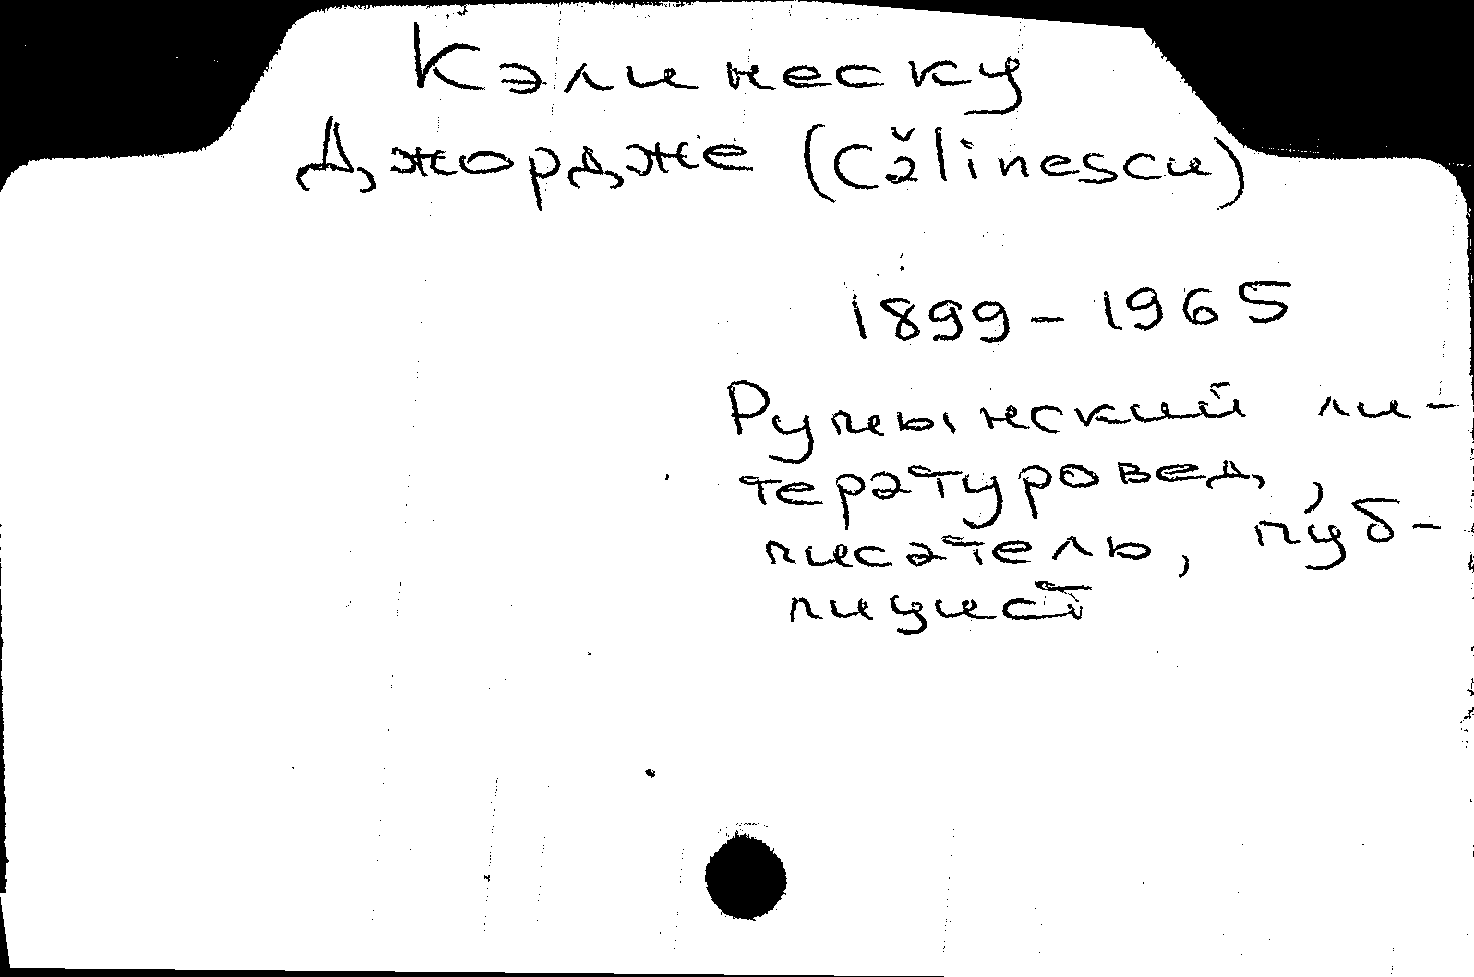 Кэлинеску
Джордже (Călinescu)
1899-1965
Румынский ли-
тературовед,
писатель, пуб-
лицист